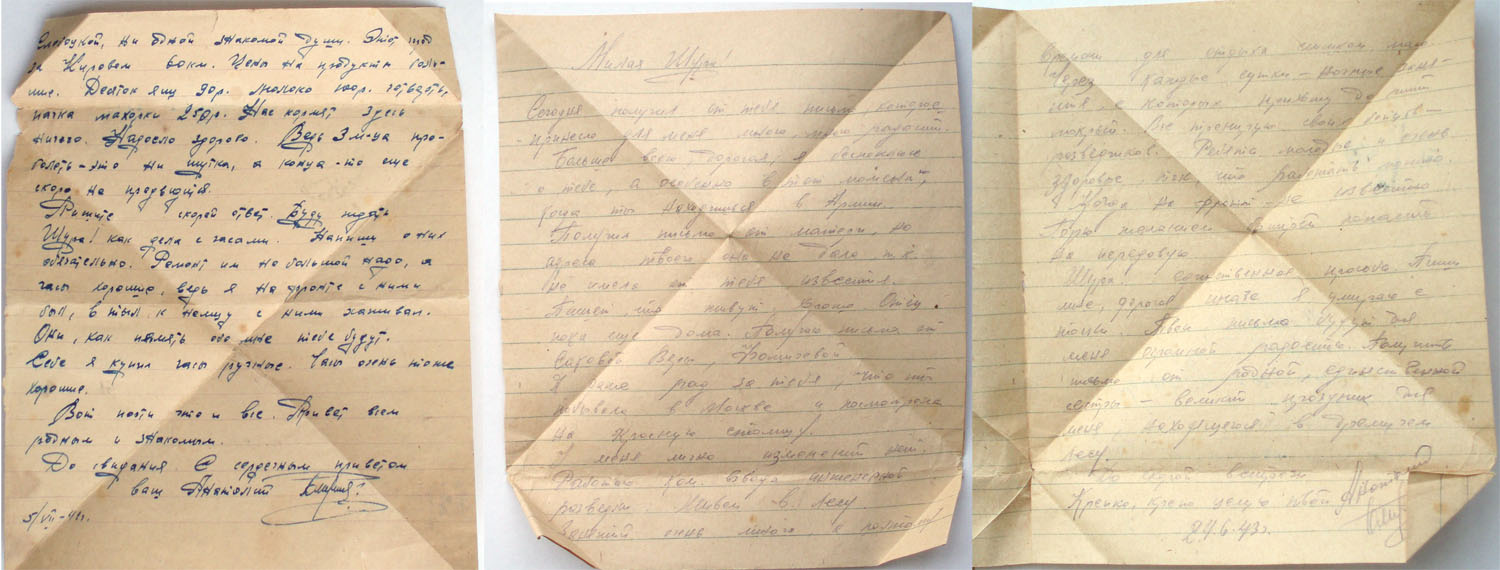 Слободской, ни одной знакомой души. Этот город
за Кировом 60км. Цены на продукты боль-
шие. Десяток яиц 90р. молоко 10р. четверть,
пачка махорки 25др. Нас кормят здесь
ничего. Надоело здорово. Ведь 3 м-ца про-
болеть - это ни шутка, а конца - то еще
скоро не предвидится.
Пишите скорей ответ Буду ждать
Шура! как дела с часами. Напиши о них
обязательно. Ремонт им не большой надо, а
часы хорошие, ведь я на фронте с ними
был, в тыл к немцу с ними хаживал.
Они, как память обо мне тебе будут.
Себе я купил часы ручные. Часы очень тоже
хорошие.
Вот почти что и все. Привет всем
родным и знакомым.
До свидания. С сердечным приветом
ваш Анатолий
5/VII-41г.
Милая Шура
Сегодня получил от тебя письмо, которое
принесло для меня много, много радости.
Больше всего, дорогая, я беспокоюсь
о тебе, а особенно в тот момент,
когда ты находишься в Армии.
Получил письмо от матери, но
адреса твоего она не дала т.к.
не имела от тебя известия.
Пишет, что живут хорошо. Отец
пока еще дома. Получаю письма от
Веры,
Я рад за тебя, что ты
побывала в Москве и посмотрела
на Красную столицу.
У меня лично изменений нет.
Работаю ком. взвода инженерной
разведки. Живем в лесу.
Занятий очень много, а поэтому
времени для отдыха мало.
Через каждые сутки - ночные заня-
тия, с которых прихожу до нитки
мокрый. Все тренирую своих бойцов
разведчиков. Ребята молодые и очень
здоровые, так что работать можно.
на фронт - не известно
Горю желанием скорей попасть
на передовую.
Шура! единственная просьба Пиши
мне, дорогая иначе я умираю с
тоски. Твои письма будут для
меня огромной радостью. Получить
письмо от родной, единственной
сестры - великий праздник для
меня, находящегося в дремучем
лесу.
До скорой встречи
Крепко, крепко целую твой Анатолий
24.6.43г.